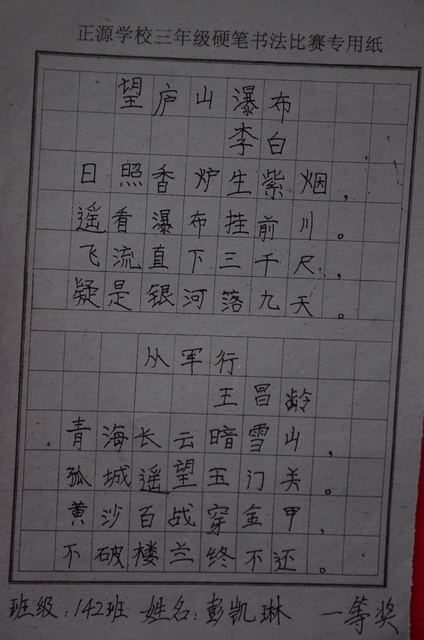 正源学校三年级硬笔书法比赛专用纸
望庐山瀑布
李白
日照香炉生紫烟，
遥看瀑布挂前川。
飞流直下三千尺，
疑是银河落九天。
从军行
王昌龄
青海长云暗雪山，
孤城遥望玉门关。
黄沙百战穿金甲，
不破楼兰终不还。
班级：142班 姓名：彭凯琳 一等奖